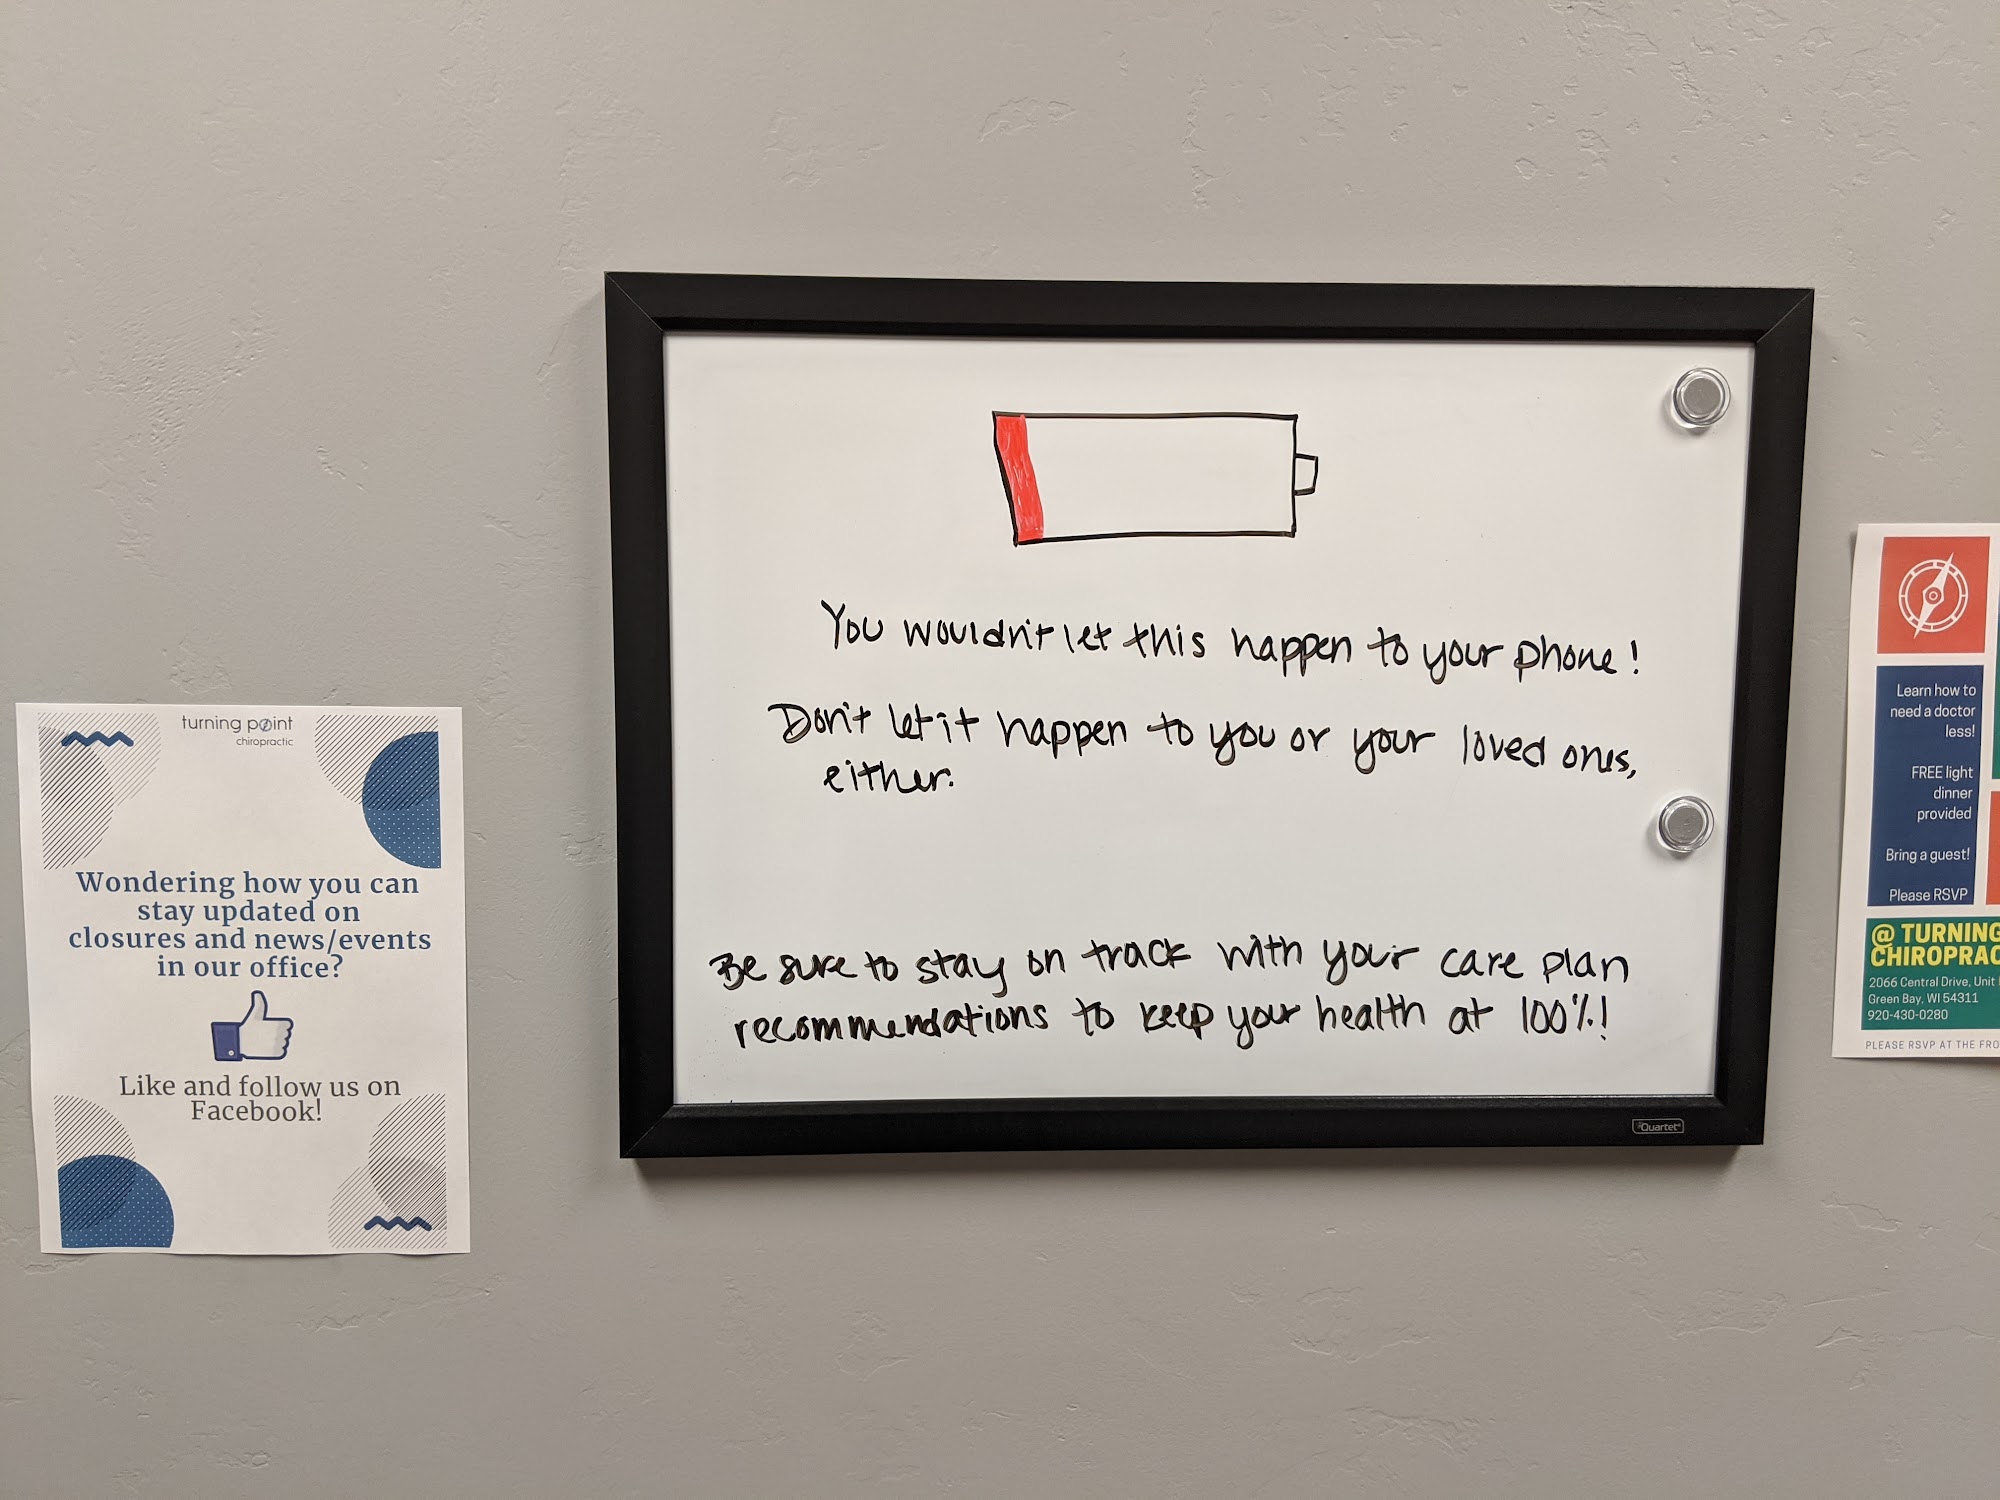 turning point
chiropractic
Wondering how you can
stay updated on
closures and news/events
in our office?
Like and follow us on
Facebook!
You wouldn't let this happen to your phone!
Don't let it happen to you or your loved ones,
either.
Be sure to stay on track with your care plan
recommendations to keep your health at 100%!
Quartet
Learn how to
need a doctor
less!
FREE light
dinner
provided
Bring a guest!
Please RSVP
@ TURNING
CHIROPRAC
2066 Central Drive, Unit
Green Bay, WI 54311
920-430-0280
PLEASE RSVP AT THE FRO